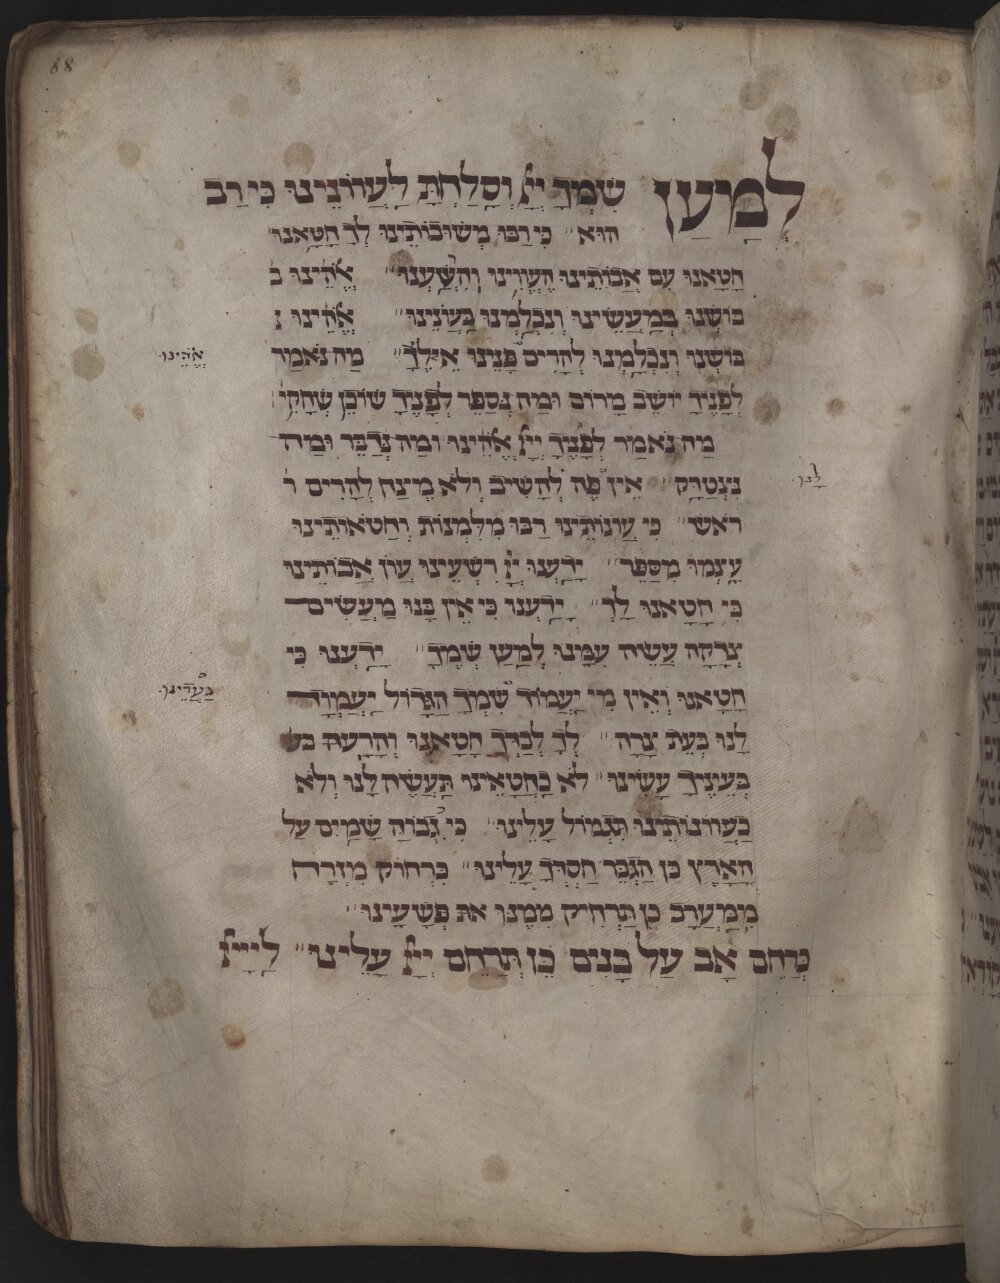 88
לְמַעַן שִׁמְךָ יְיָ וְסָלַחְתָּ לַעֲווֹנֵינוּ כִּי רַב
הוּא כִּי רַבּוּ מְשׁוּבוֹתֵינוּ לְךָ חָטָאנוּ
חָטָאנוּ עִם אֲבוֹתֵינוּ הֶעֱוִינוּ וְהִרְשָׁעְנוּ אֱלֹהֵינוּ ב
בּוֹשְׁנוּ בְּמַעֲשֵׂינוּ וְנִכְלַמְנוּ בַּעֲוֹנֵינוּ אֱלֹהֵינוּ
בּוֹשְׁנוּ וְנִכְלַמְנוּ לְהָרִים פָּנֵינוּ אֵילֶךָ מַה נֹּאמַר
אֱלֹהֵינוּ
לְפָנֶיךָ יוֹשֵׁב מָרוֹם וּמַה נְּסַפֵּר לְפָנֶיךָ שׁוֹכֵן שְׁחָקִי
מַה נֹּאמַר לְפָנֶיךָ יְיָ אֱלֹהֵינוּ וּמַה נְּדַבֵּר וּמַה
נִּצְטַדָּק אֵין פֶּה לְהָשִׁיב וְלֹא מֵצַח לְהָרִים ר
רֹאשׁ כִּי עֲוֹנוֹתֵינוּ רַבּוּ מִלִּמְנוֹת וְחַטֹּאותֵינוּ
עָצְמוּ מִסַּפֵּר יָדַעְנוּ יְיָ רִשְׁעֵינוּ עֲוֹן אֲבוֹתֵינוּ
כִּי חָטָאנוּ לָךְ יָדַעְנוּ כִּי אֵין בָּנוּ מַעֲשִׂים
צְדָקָה עֲשֵׂה עִמָּנוּ לְמַעַן שְׁמֶךָ יָדַעְנוּ כִּי
חָטָאנוּ וְאֵין מִי יַעֲמוֹד שִׁמְךָ הַגָּדוֹל יַעֲמָוד
בַּעֲדֵינוּ
לָנוּ בְּעֵת צָרָה לְךָ לְבַדְּךָ חָטָאנוּ וְהָרָעה
בְּעֵינֶיךָ עָשִׂינוּ לֹא כַחֲטָאֵינוּ תַּעֲשֶׂה לָנוּ וְלֹא
כַעֲוונוֹתֵינוּ תִּגְמוֹל עָלֵינוּ כִּי גְבוֹהַּ שָׁמַיִם עַל
הָאָרֶץ כֵּן הַגְבֵּר חַסְדְּךָ עָלֵינוּ כִּרְחוֹק מִזְרָח
מִמַּעֲרָב כֵּן תַּרְחִיק מִמֶּנוּ אֶת פְּשָׁעֵינוּ
כְּרַחֵם אָב עַל בָּנִים כֵּן תְּרַחֵם יְיָ עָלֵינוּ לַייָ